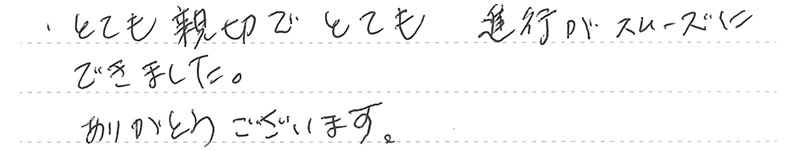 ・とても親切でとても 進行がスムーズに
できました。
ありがとうございます。